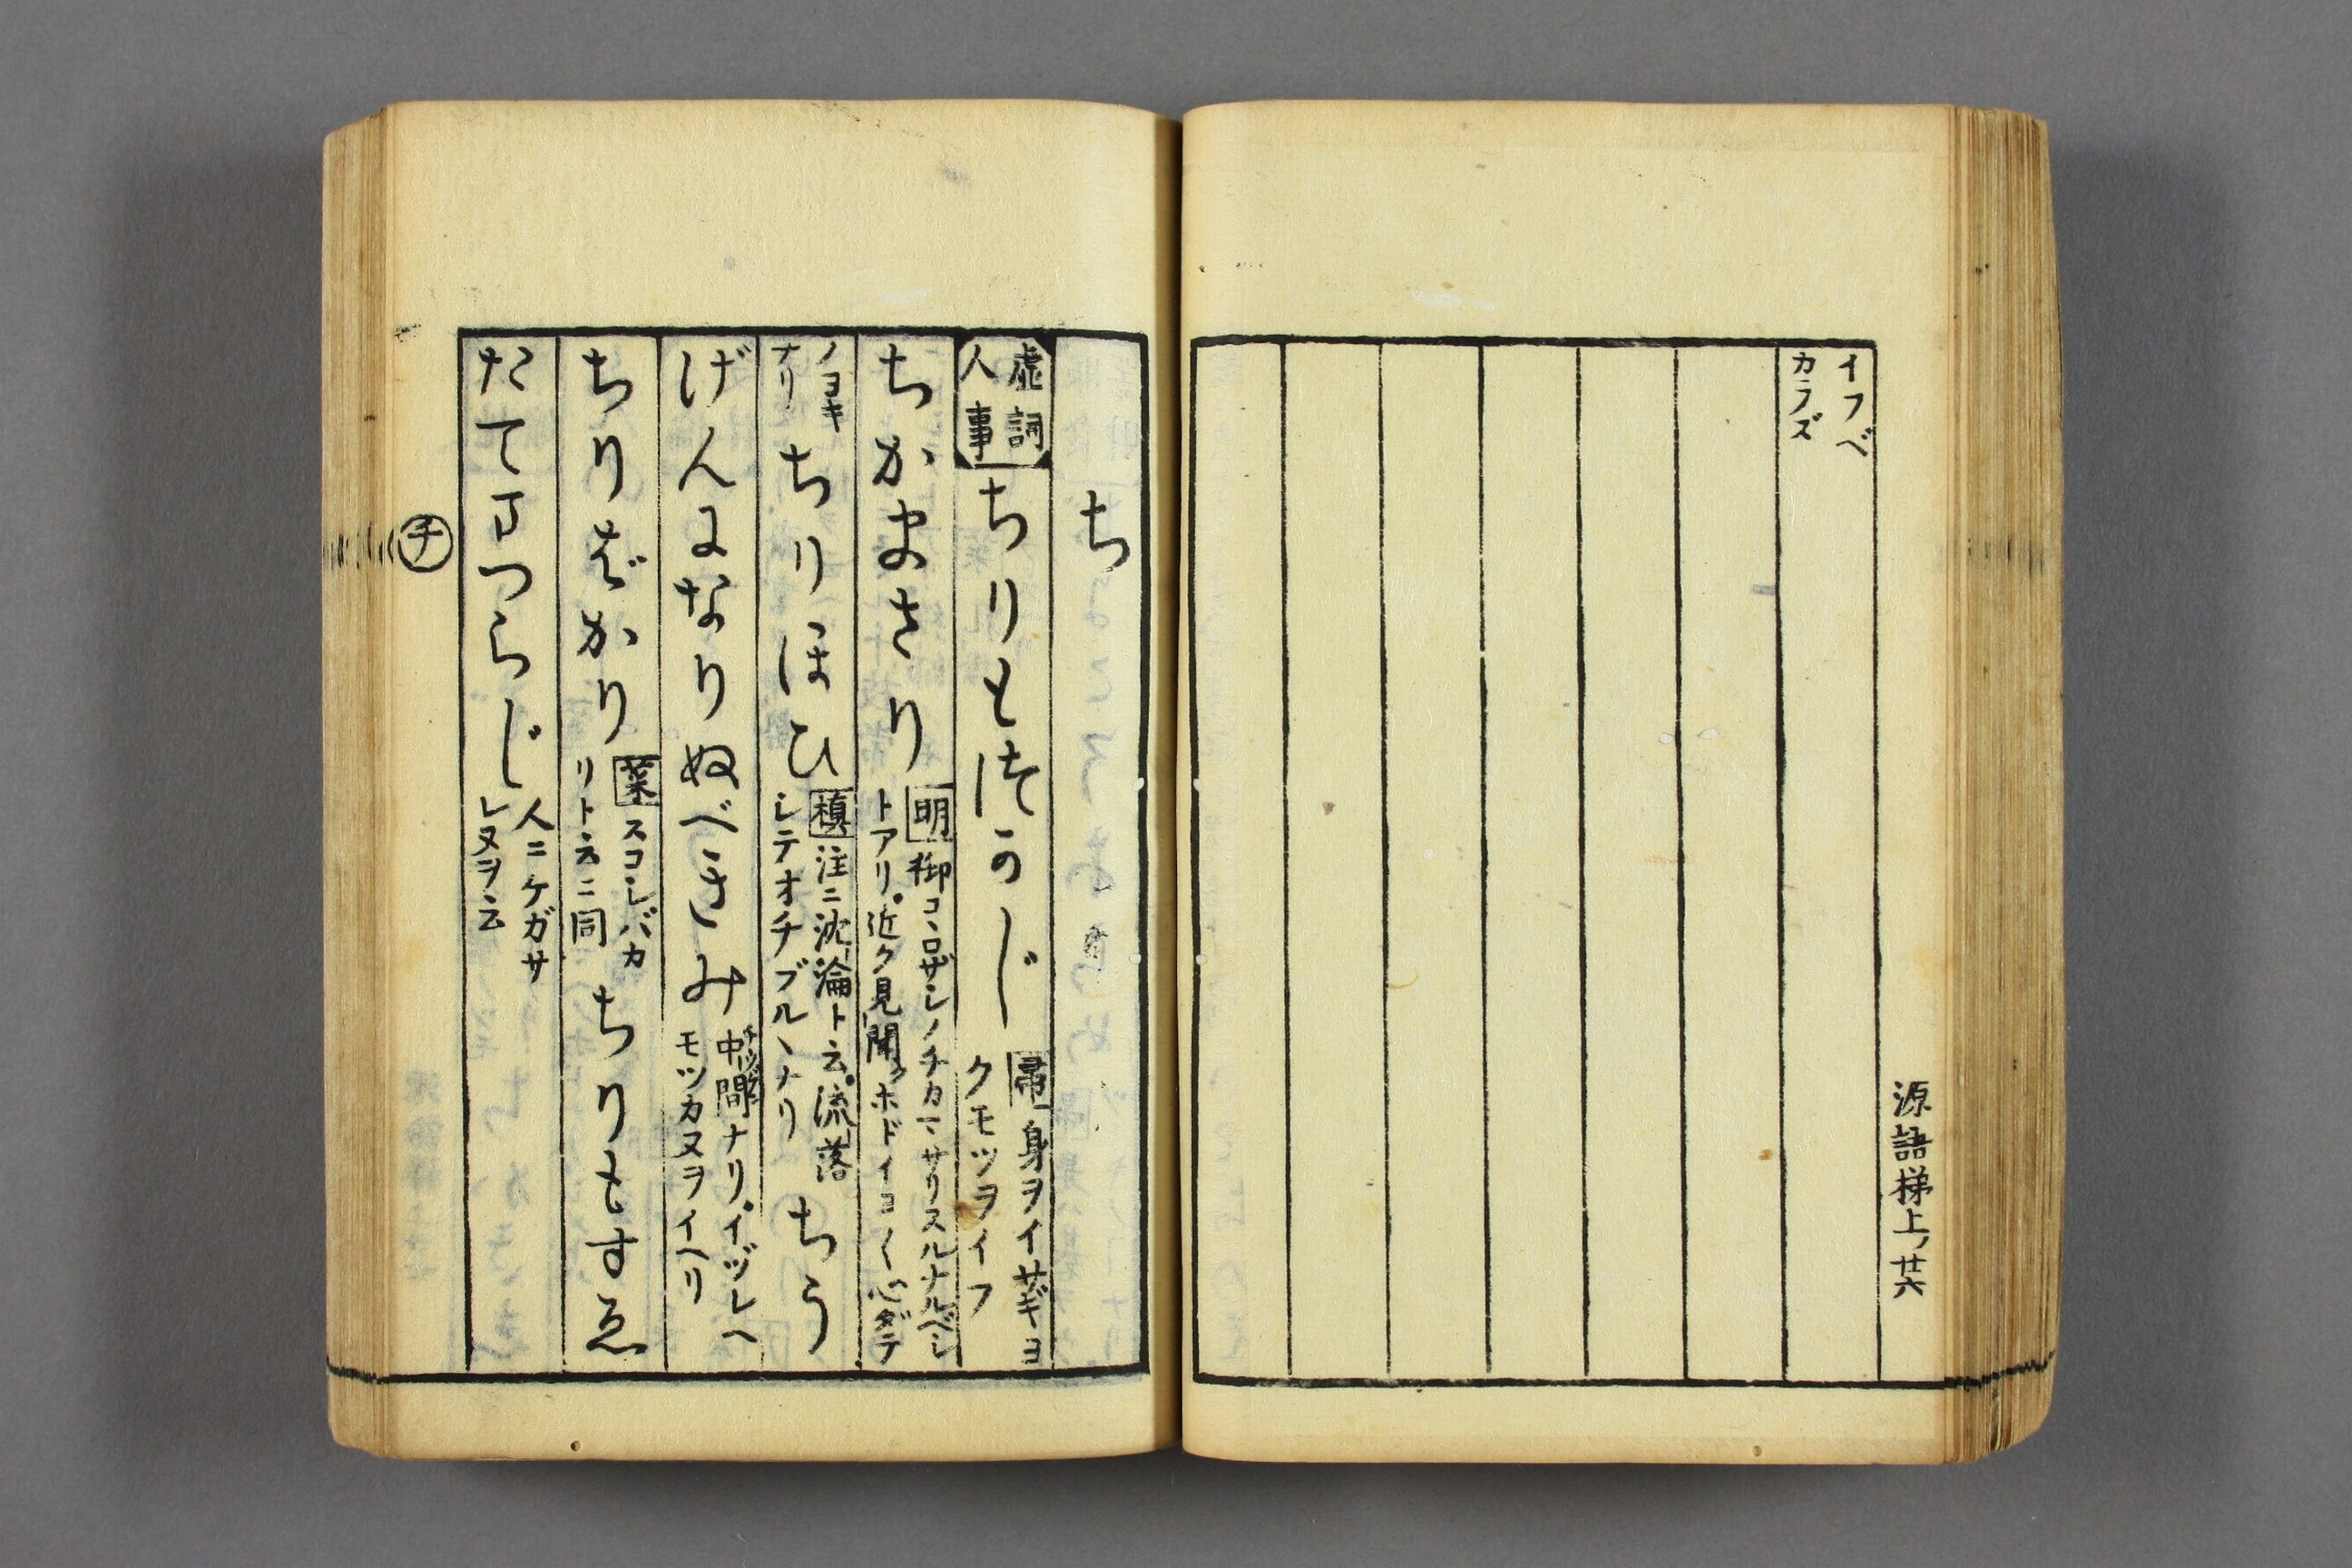 イフベ
カラズ
源語梯上 廿六
ち
虚詞
人事
ちりもつかじ
帚 身ヲイサギヨ
クモツヲイフ
ちかまさり
明 御コヽロザシノチカマサリスルナルベシ
トアリ。近ク見聞クホドイヨ〱心ダテ
ノヨキ
ナリ
ちりほひ
槙 注ニ沈淪ト云。流落
シテオチブルヽナリ
ちう
げんになりぬべきみ
中間ナリ。イヅレヘ
モツカヌヲイヘリ
ちりばかり
葉 スコシバカ
リト云ニ同
ちりもすゑ
たてまつらじ
人ニケガサ
レヌヲ云
チ